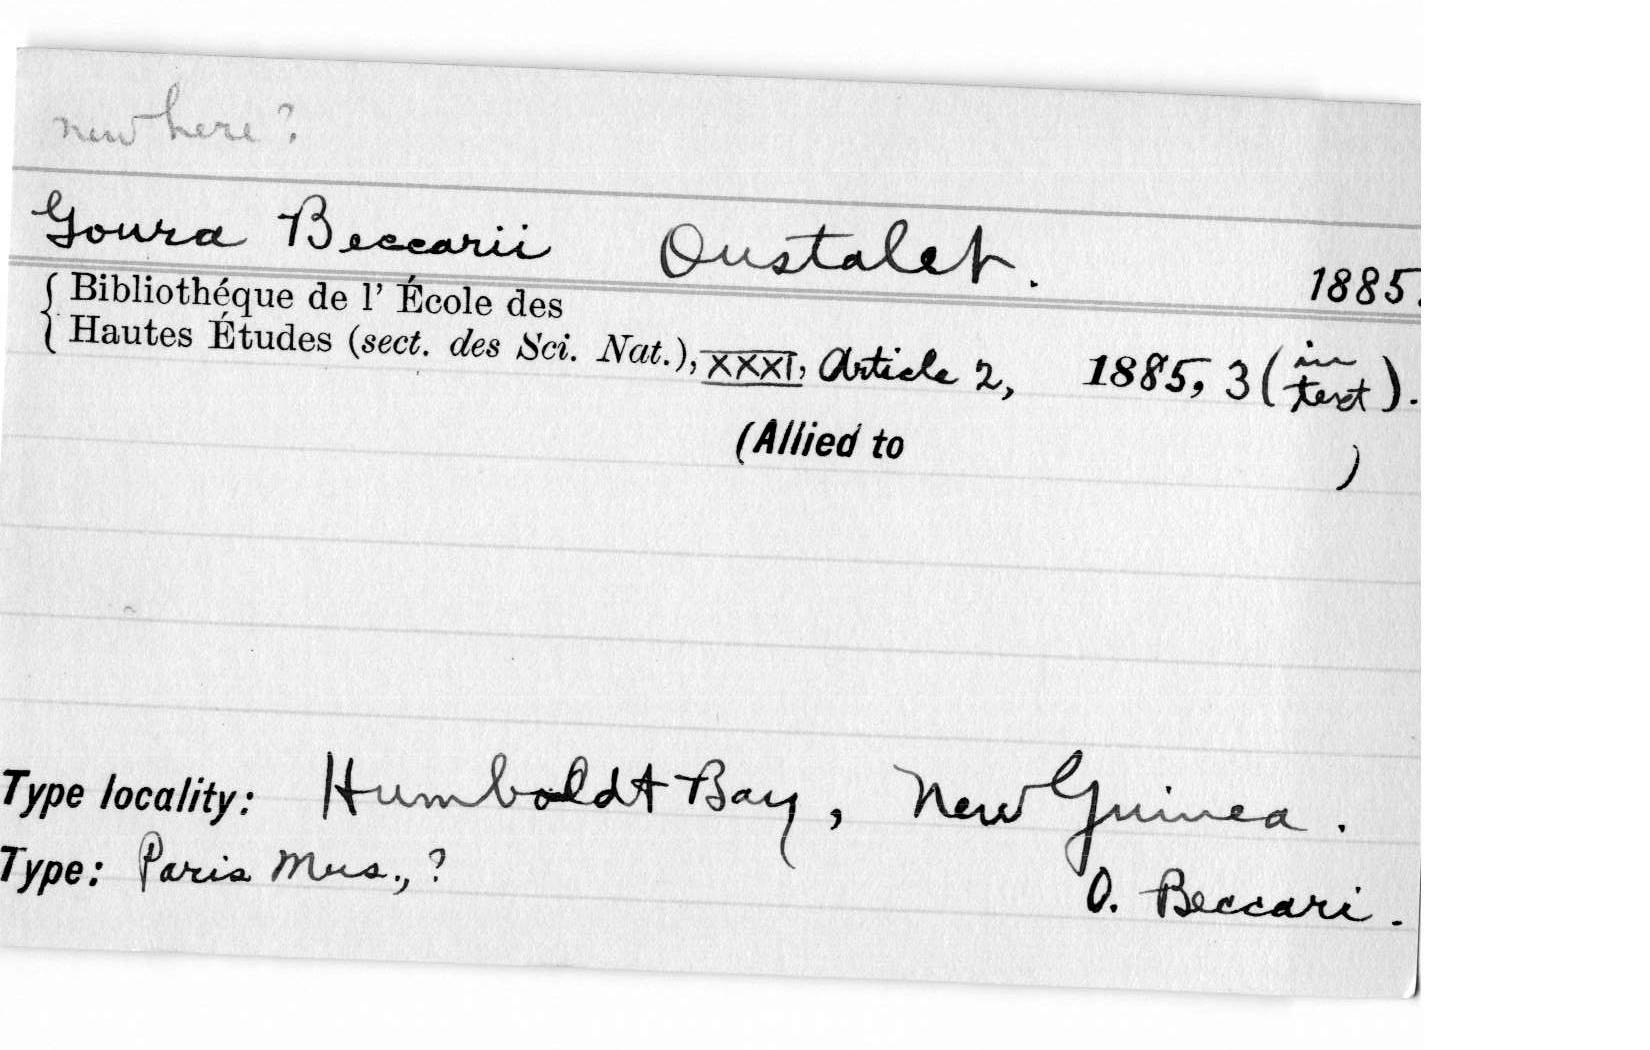 new here?
Goura Beccarii Oustalet. 1885.
Bibliothéque de l' École des
Hautes Études (sect. des Sci. Nat.), XXXI, Article 2, 1885, 3 (in text).
(Allied to )
Type locality: Humboldt Bay, New Guinea.
Type: Paris Mus., ? O. Beccari.